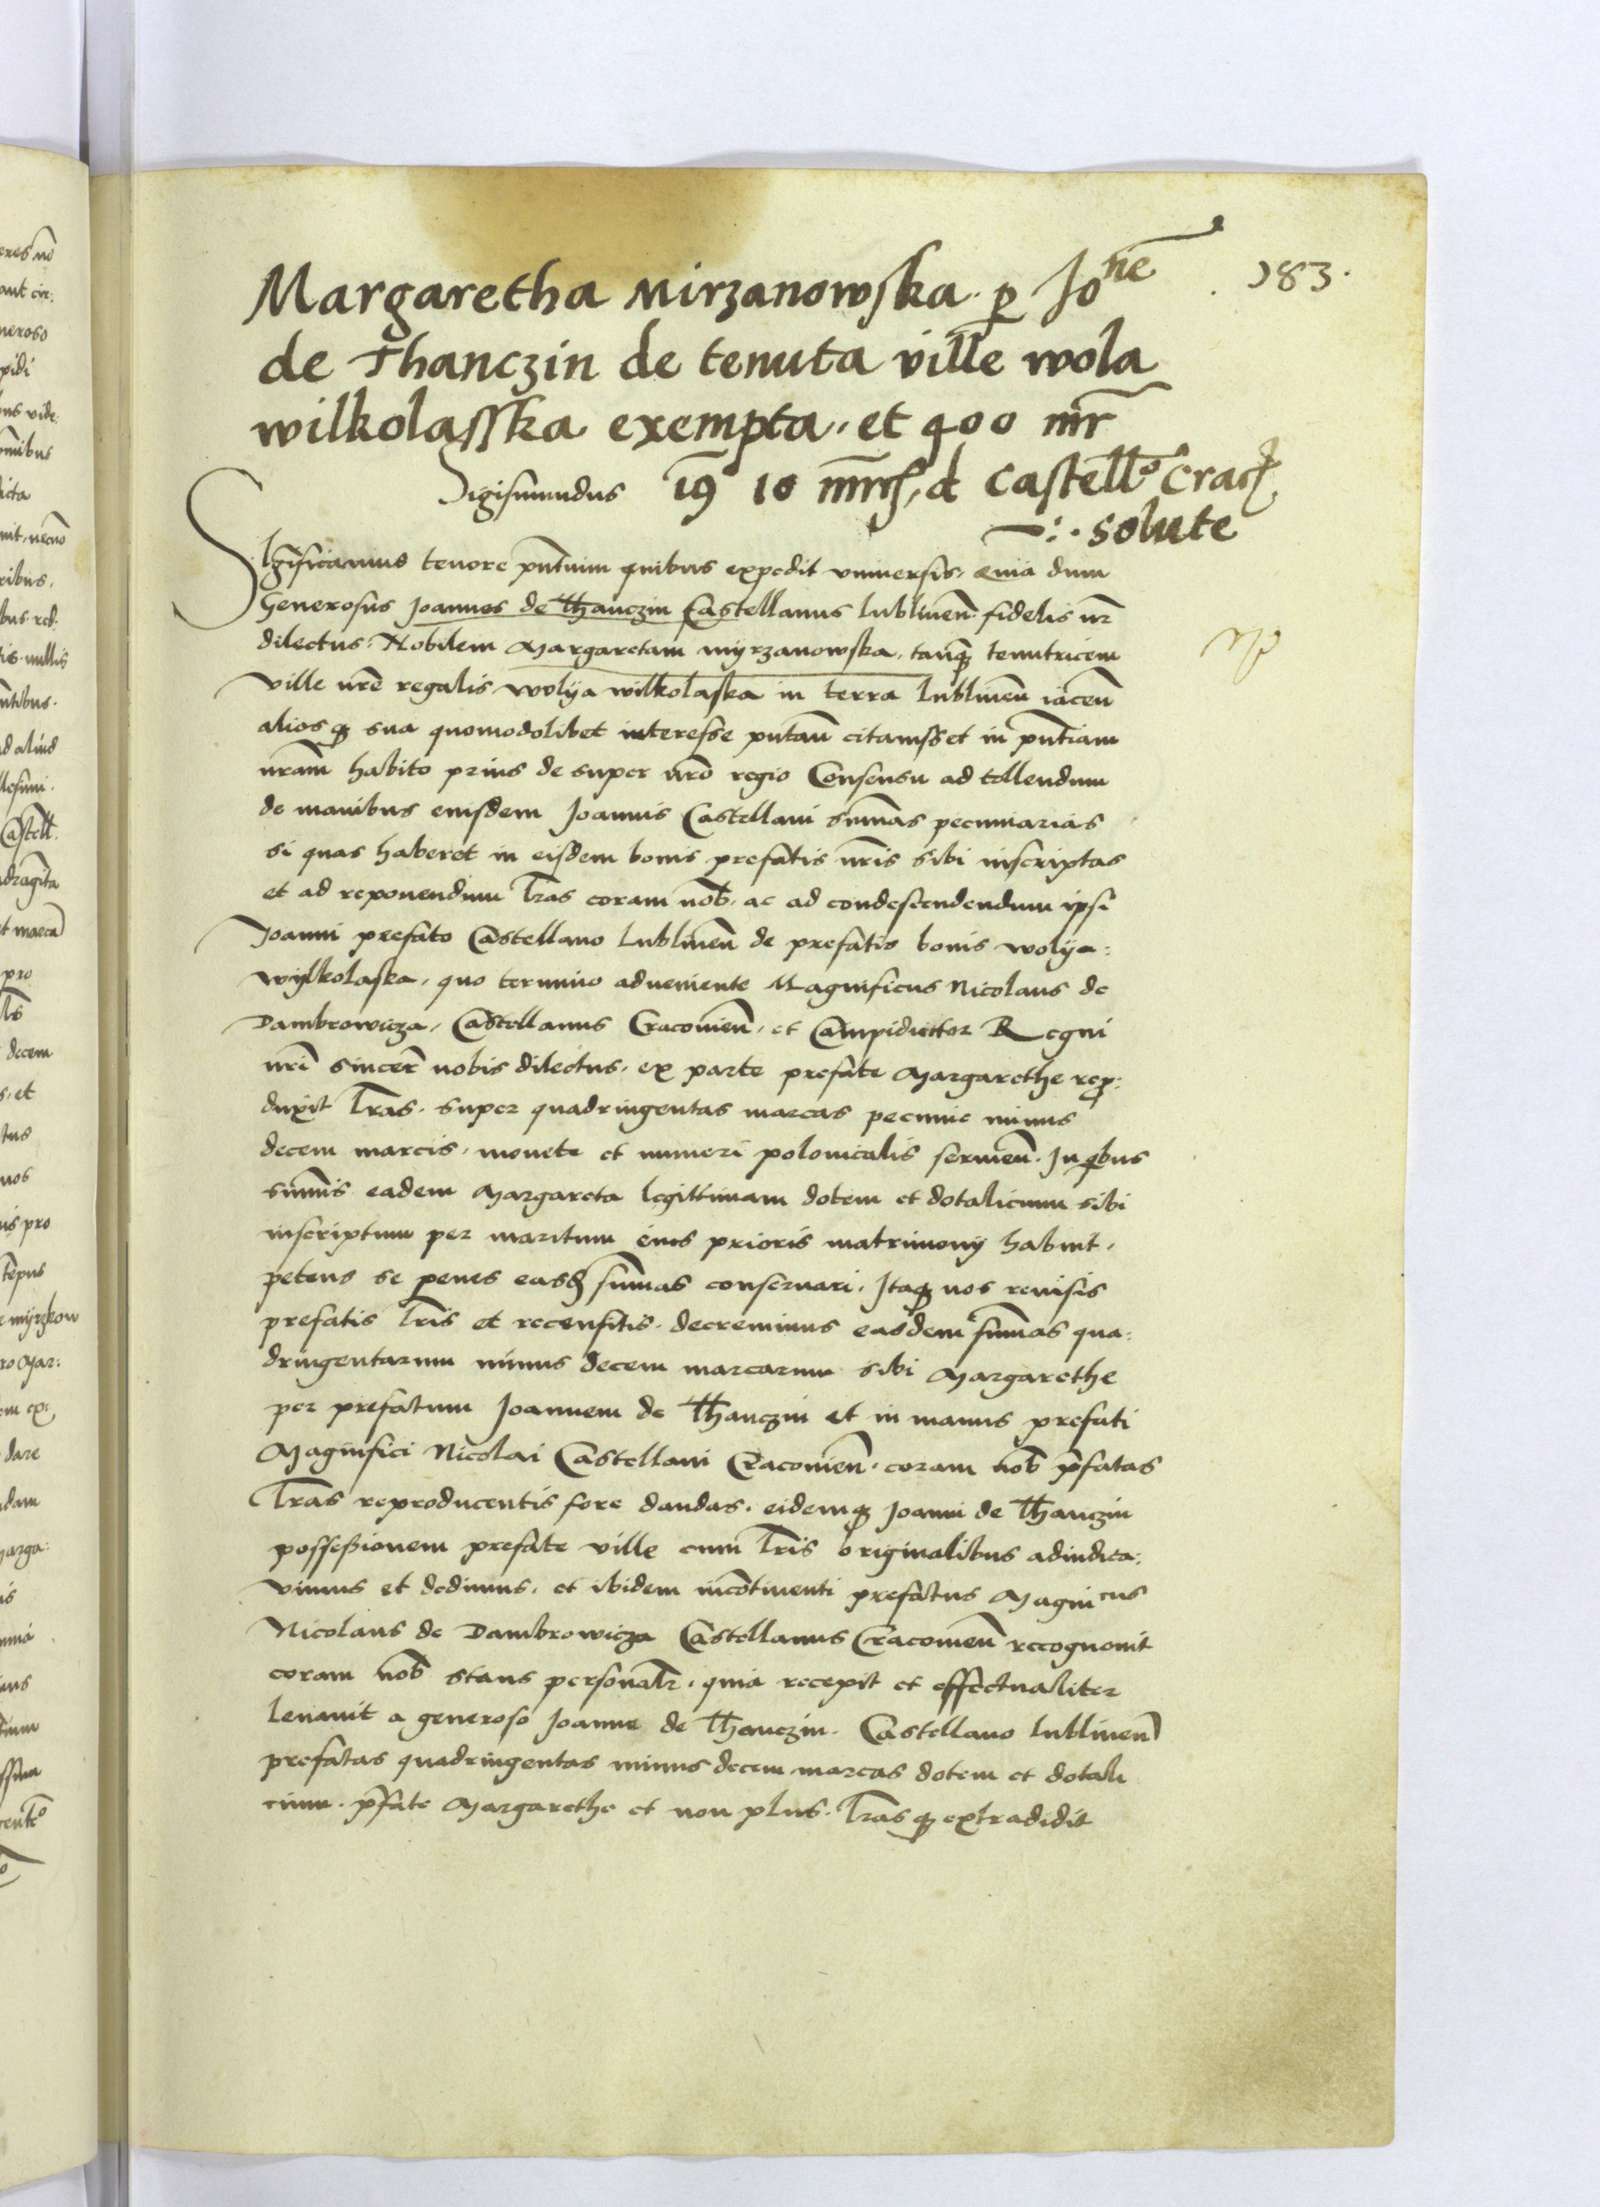 183.
Margaretha Mirzanowska p Jo^ne
de Thanczin de tenuta ville wola
wilkolasska exempta. et 400 mr̄
Sigismundus 10 mr̄, d Castell^o Crac
solute
Significamus tenore pn̄tium quibus expedit vniuersis. Quia dum
Generosus Joannes de Thanczin Castellanus lublinen̄. fidelis nr̄
dilectus. Nobilem Margaretam myrzanowska, tanq̄ tenutricem
ville nrē regalis wolya wilkolaska in terra lublinen̄ iacen̄
alios q̄ sua quomodolibet interesse putan̄ citauisset in pn̄tiam
nram̄ habito prius de super nro̅ regio Consensu ad tollendum
de manibus eiusdem Joannis Castellani sum̄as pecuniarias
si quas haberet in eisdem bonis prefatis nr̄is sibi inscriptas
et ad reponendum lr̄as coram nob̄. ac ad condescendendum ipsi
Joanni prefato Castellano lublinen̄ de prefatis bonis wolya:
wylkolaska, quo termino adueniente Magnificus Nicolaus de
Dambrowicza, Castellanus Cracouien̄, et Campiductor Regni
nr̄i sincer̄ nobis dilectus. ex parte prefate Margarethe rep̱:
duxit lr̄as. super quadringentas marcas pecunie minus
decem marcis, monete et numeri polonicalis seruien̄. In qbus
sum̄is eadem Margareta legittimam dotem et dotalicium sibi
inscriptum per maritum eius prioris matrimonij habuit.
petens se penes easd̄ sum̄as conseruari. Itaq̄ nos reuisis
prefatis lr̄is et recensitis. decreuimus easdem sum̄as qua:
dringentarum minus decem marcarum sibi Margarethe
per prefatum Joannem de Thanczin et in manus prefati
Magnifici Nicolai Castellani Cracouien̄. coram nob̄ p̄fatas
lr̄as reproducentis fore dandas. eidemq̄ Joanni de Thanczin
possessionem prefate ville cum lr̄is originalibus adiudica:
uimus et dedimus. et ibidem incōtinenti prefatus Magnicus
Nicolaus de Dambrowicza Castellanus Cracouien̄ recognouit
coram nob̄ stans personalr̄. quia recepit et effectualiter
leuauit a generoso Joanne de Thanczin. Castellano lublinen̄
prefatas quadringentas minus decem marcas dotem et dotali
cium. p̄fate Margarethe et non plus. lr̄as q̄ extradidit